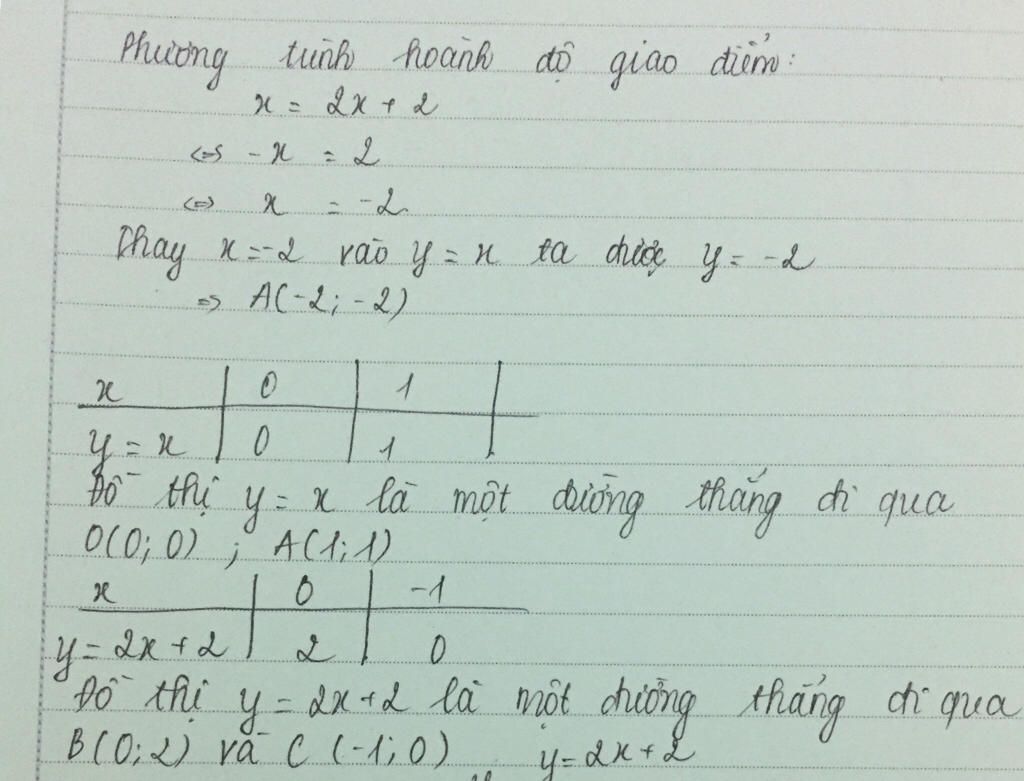 Phương trình hoành độ giao điểm:
x = 2x + 2
⇔ -x = 2
⇔ x = -2
Thay x = -2 vào y = x ta được y = -2
⇒ A(-2; -2)
x | 0 | 1 |
y = x | 0 | 1 |
Đồ thị y = x là một đường thẳng đi qua
O(0; 0) ; A(1; 1)
x | 0 | -1
y = 2x + 2 | 2 | 0
Đồ thị y = 2x + 2 là một đường thẳng đi qua
B(0; 2) và C (-1; 0) y = 2x + 2